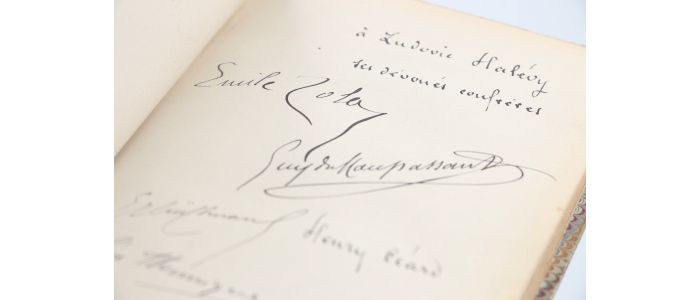 à Ludovic Halévy
ses dévoués confrères
Emile Zola
Guy de Maupassant
Huysmans
Henry Céard
Hennique